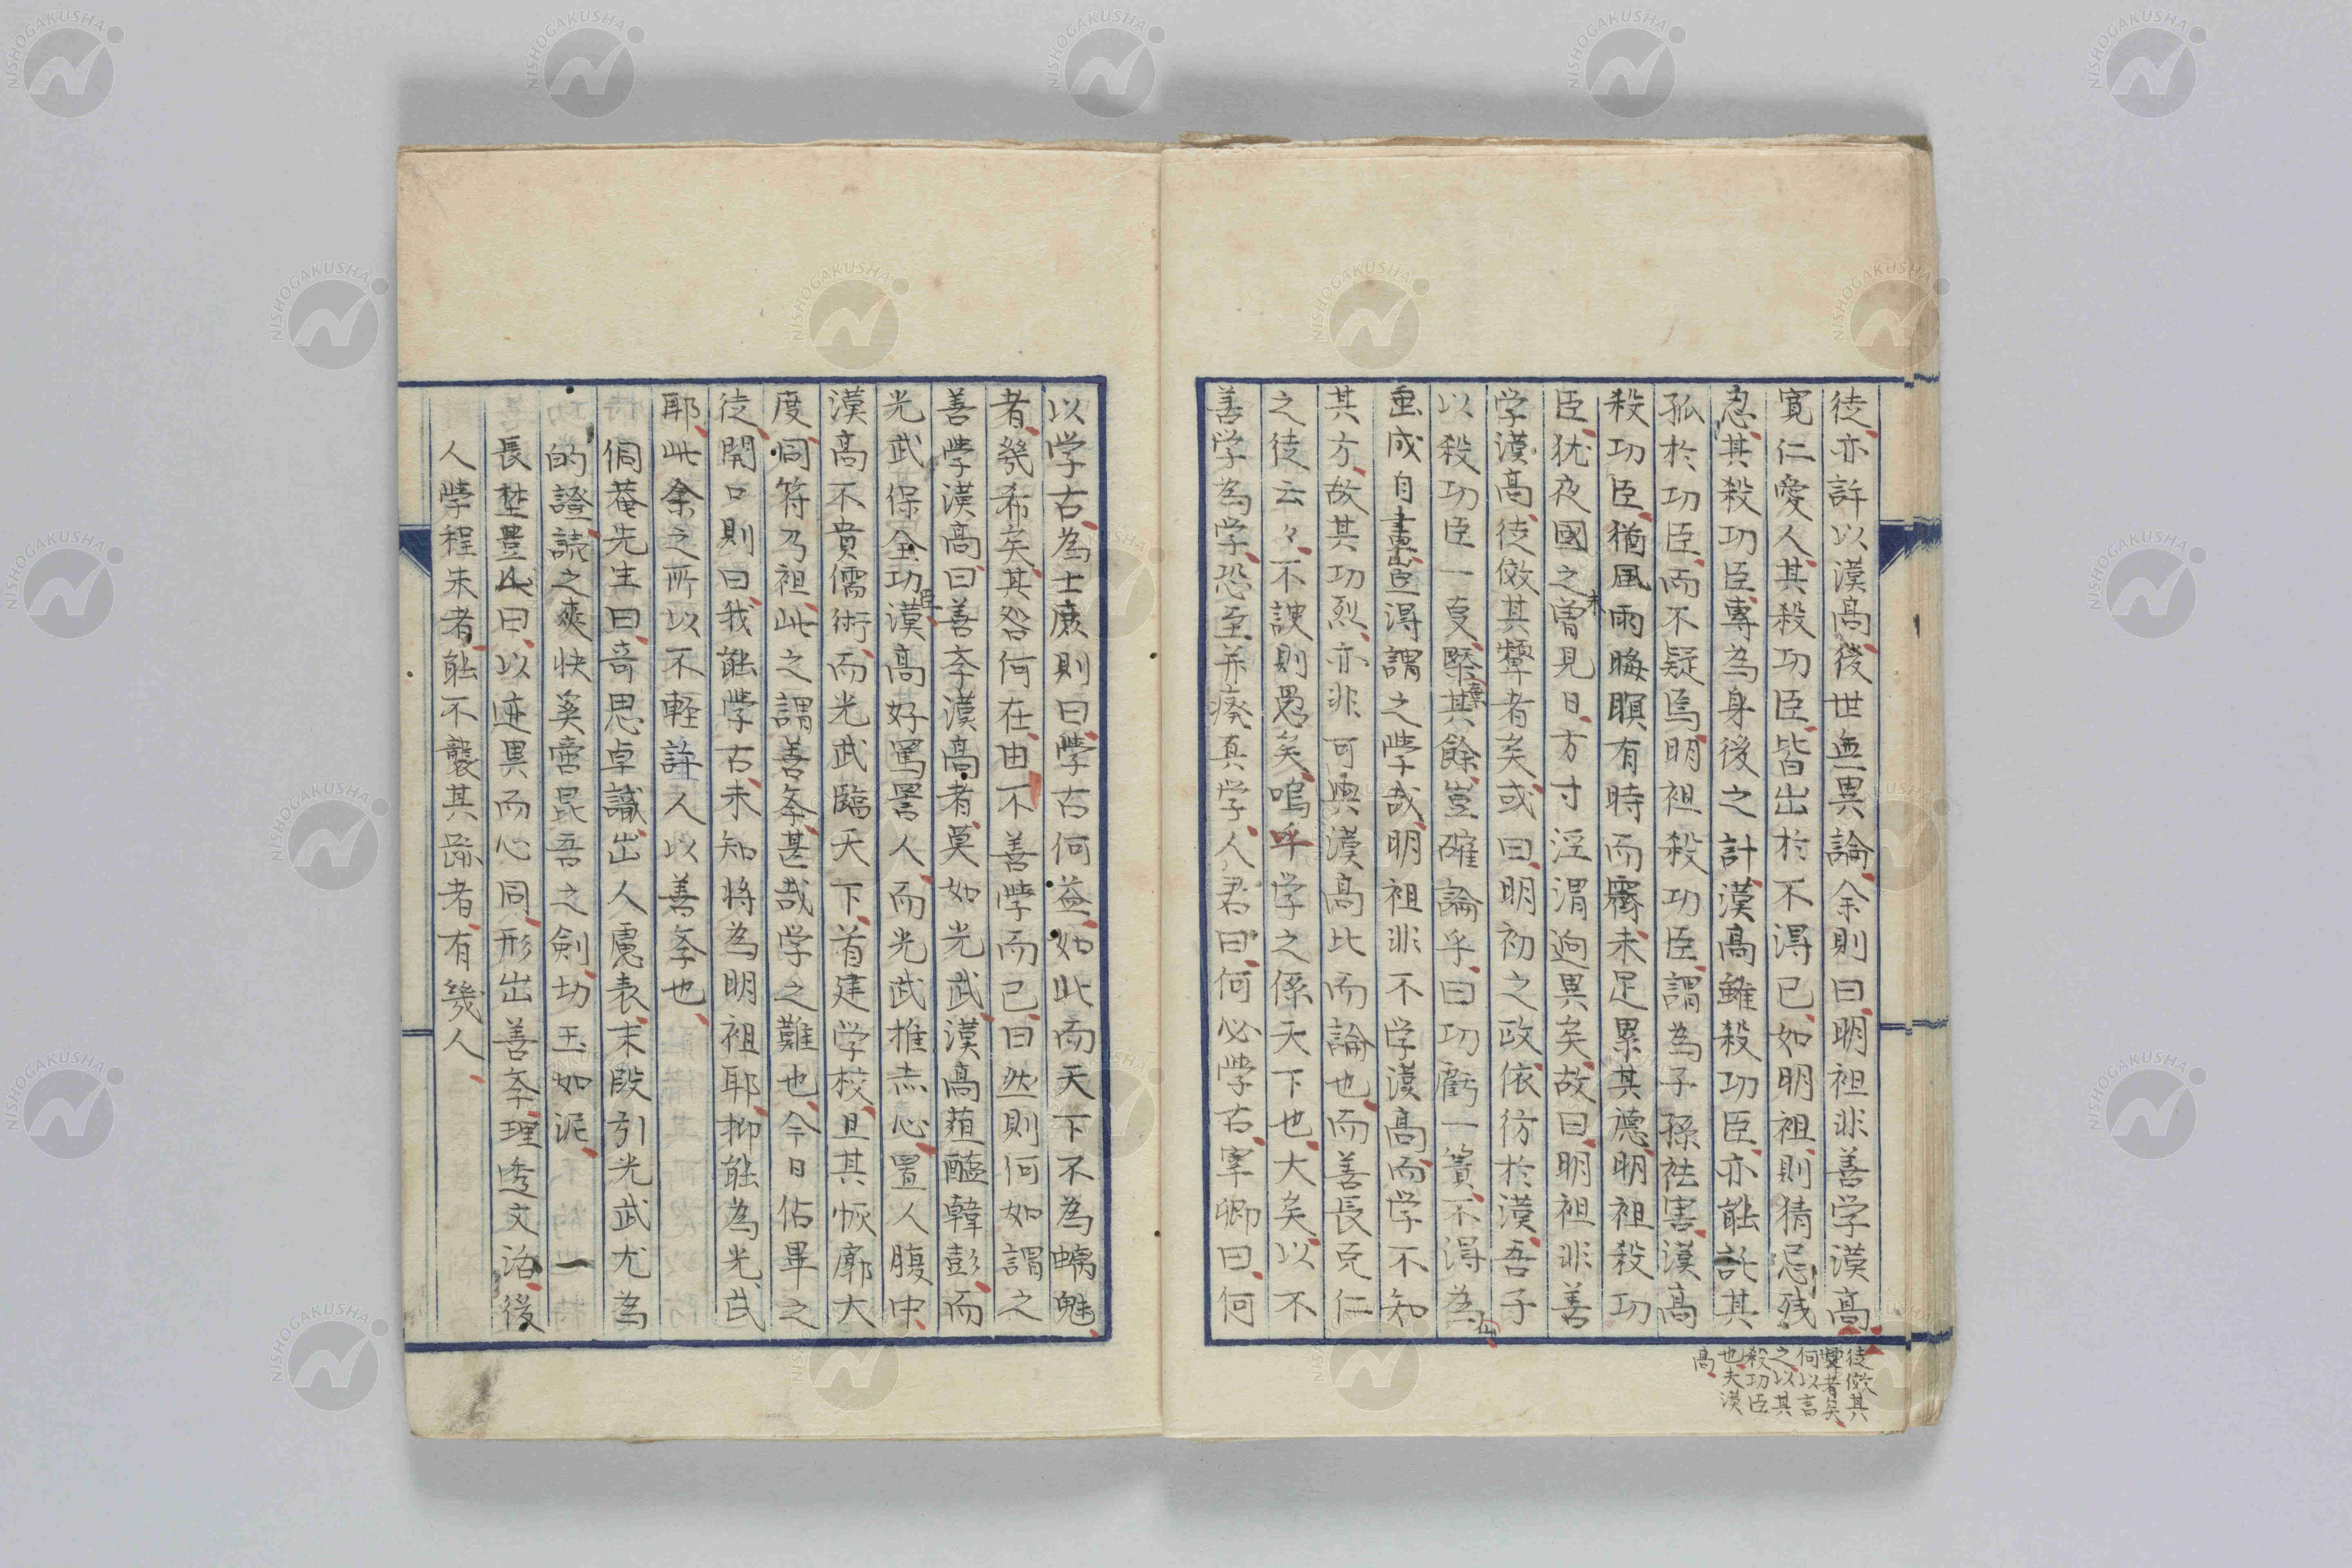 徒亦許以漢高後世無異論余則曰明祖非善学漢高
徒倣其
顰者矣
何以言
之以其
殺功臣
也夫漢
高
寛仁愛人其殺功臣皆出於不得已如明祖則猜忌残
忍其殺功臣專為身後之計漢高雖殺功臣亦能託其
孤於功臣而不疑焉明祖殺功臣謂為子孫祛害漢高
殺功臣猶風雨晦瞑有時而霽未足累其德明祖殺功
臣犹夜國之未曽見日方寸淫渭逈異矣故曰明祖非善
学漢高徒倣其顰者矣或曰明初之政依彷於漢吾子
以殺功臣一㕝槩其餘豈確論乎曰功虧一簣不得為
垂成自畫豈得謂之學哉明祖非不学漢高而学不知
其方故其功烈亦非可與漢高比而論也而善長克仁
之徒云々不諛則愚矣嗚乎学之係天下也大矣以不
善学為学恐至并癈真学人君曰何必學古宰卿曰何
以学古為士庶則曰學古何益如此而天下不為螭魅
者幾希矣其咎何在由不善學而已曰然則何如謂之
善學漢高曰善李漢高者莫如光武漢高葅醢韓彭而
光武保全功臣漢高好罵詈人而光武推赤心置人腹中
漢高不貴儒術而光武臨天下首建学校且其恢廓大
度同符乃祖此之謂善斈甚哉学之難也今日佔畢之
徒開口則曰我能學古未知将為明祖耶抑能為光武
耶此余之所以不輕許人以善斈也
侗菴先生曰奇思卓識出人慮表末段引光武尤為
的證読之爽快奚啻昆吾之劍切玉如泥
長埜豊山曰以迹異而心同形出善斈理透文活後
人學程朱者能不襲其跡者有幾人